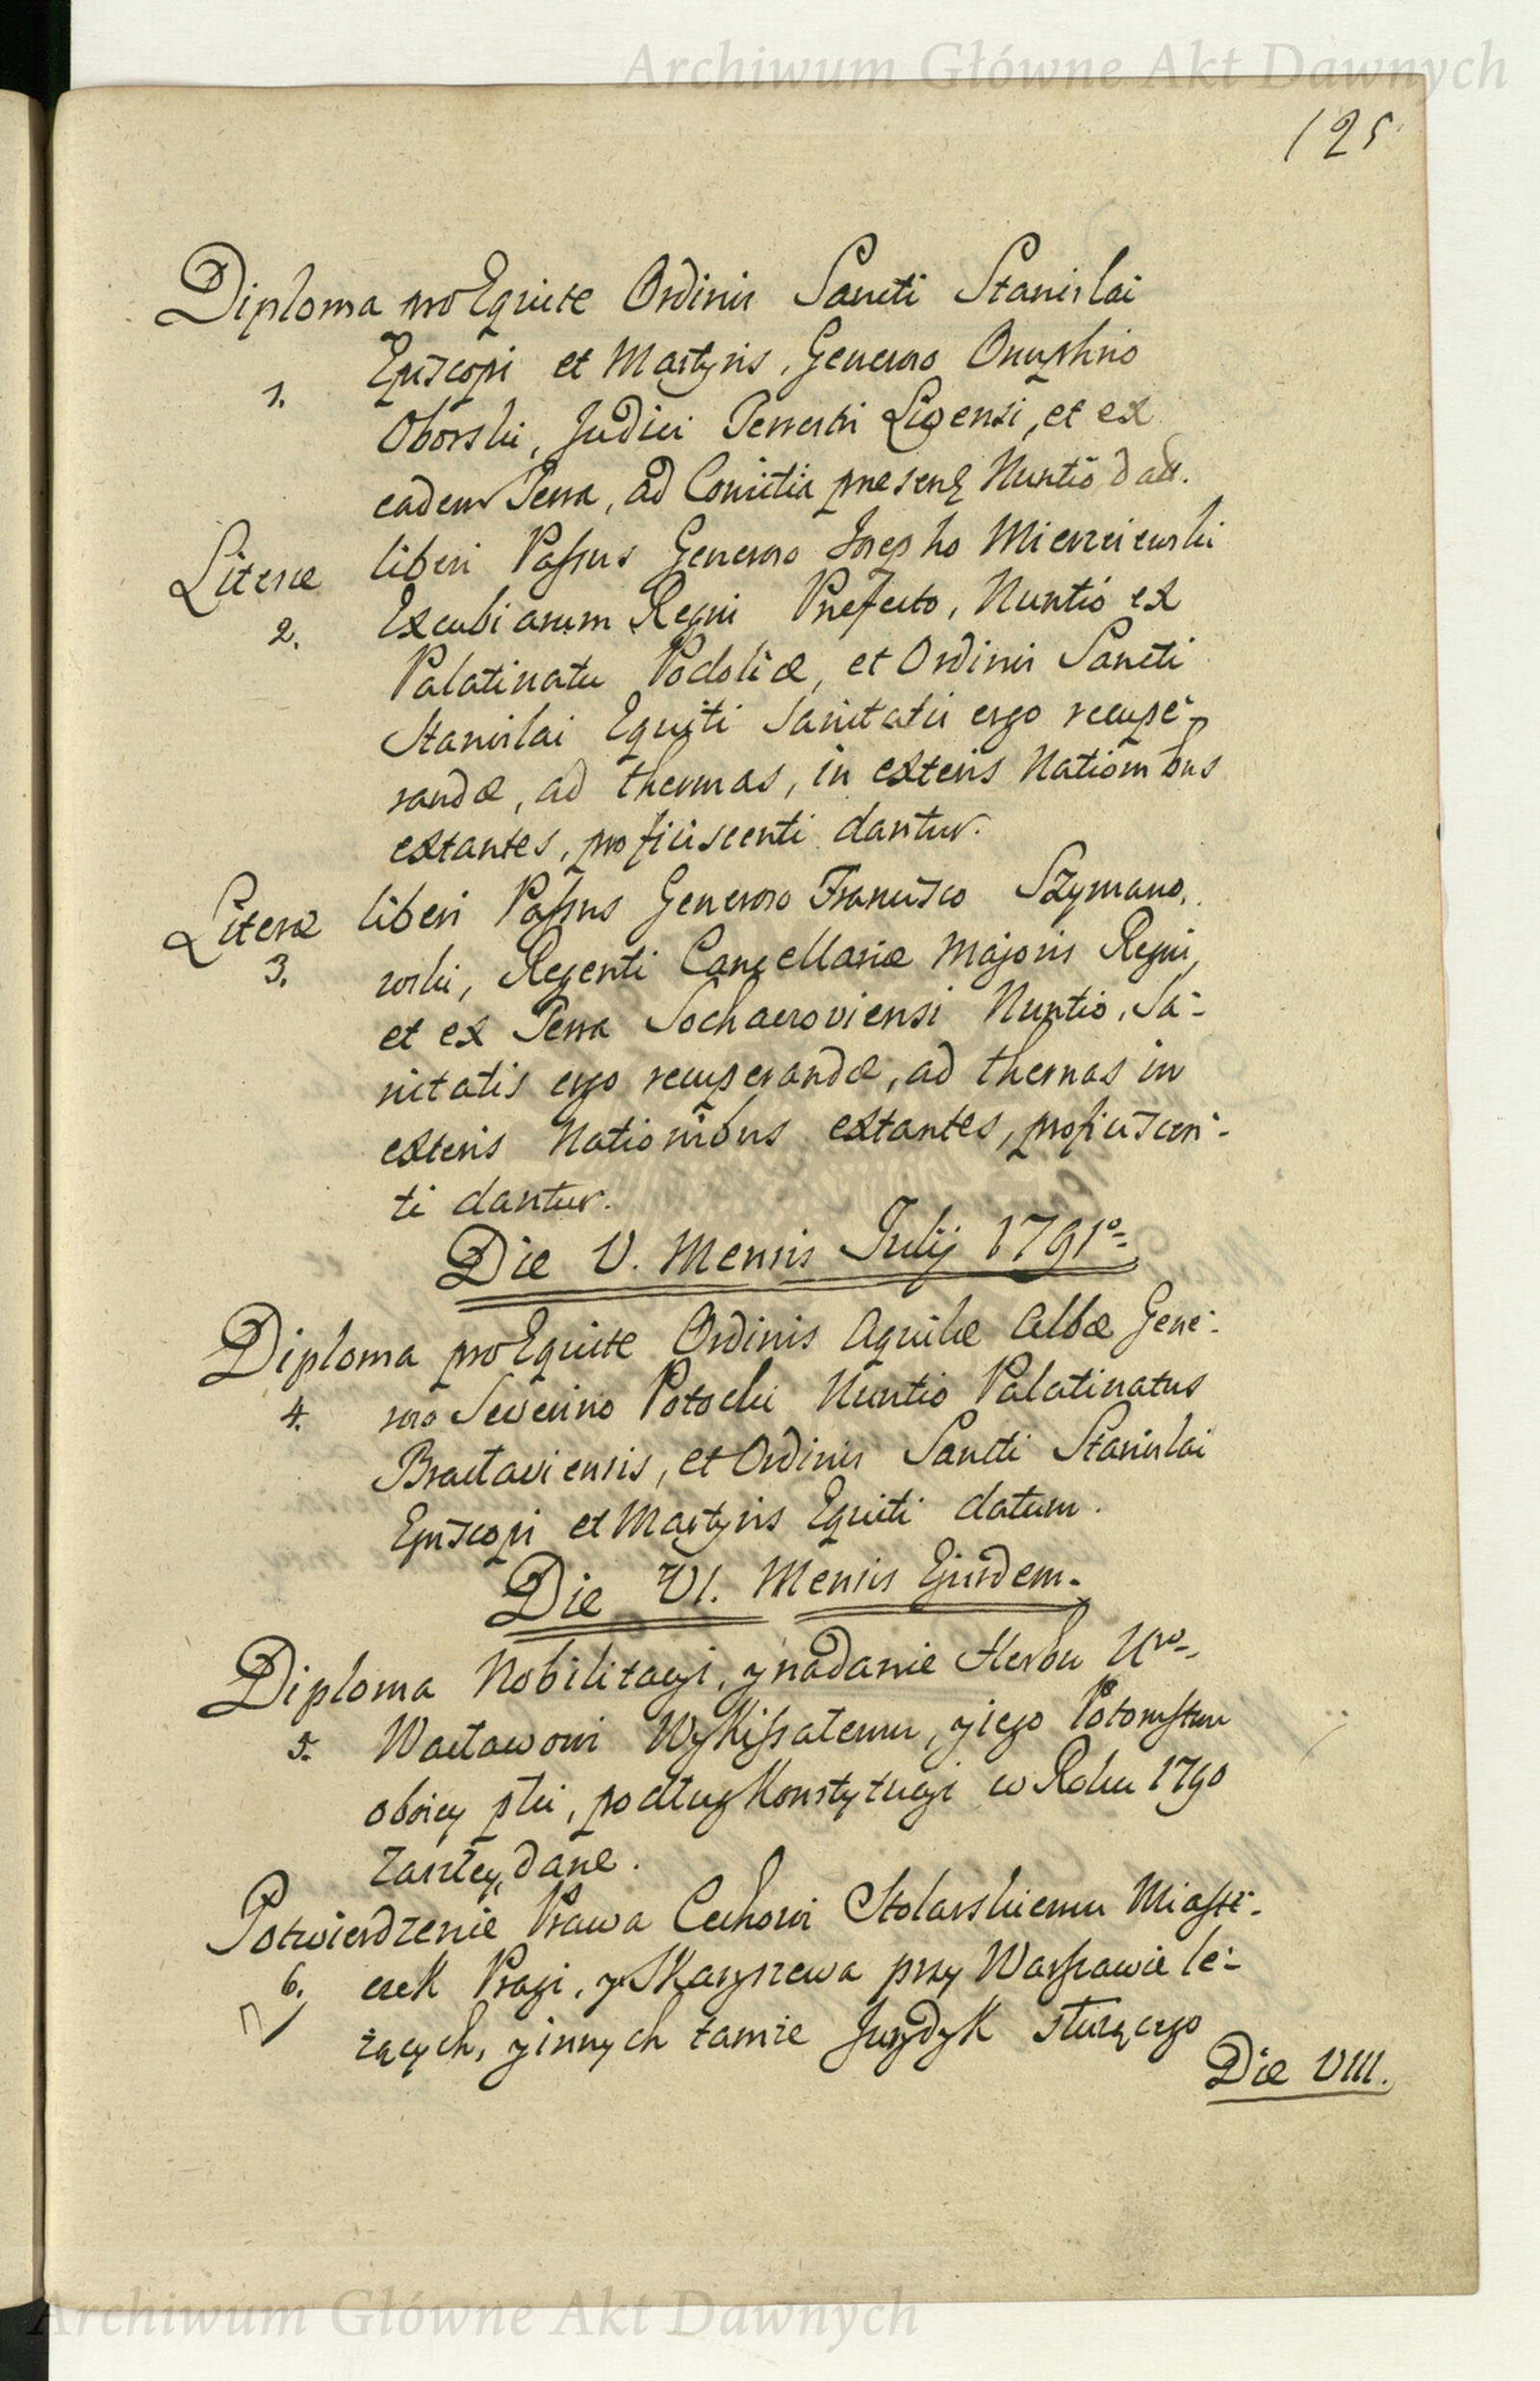 Archiwum Główne Akt Dawnych
125
Diploma pro Equite Ordinis Sancti Stanislai
Episcopi et Martyris, Generoso Onuphrio
1.
Oborski, Judici Terrestri Livensi, et ex
eadem Terra, ad Comitia presen Nuntio, datt.
Literæ liberi Passus Generoso Josepho Mierzeiewski
2. Excubiarum Regni Præfecto, Nuntio ex
Palatinatu Podoliæ, et Ordinis Sancti
Stanislai Equiti Sanitatis ergo recupe-
randæ, ad thermas, in exteris Nationibus
extantes, proficiscenti dantur.
Literæ liberi Passus Generoso Francisco Szymano-
3. wski, Regenti Cancellariæ Majoris Regni,
et ex Terra Sochaczoviensi Nuntio, Sa-
nitatis ergo recuperandæ, ad thermas in
exteris Nationibus extantes, proficiscen-
ti dantur.
Die V. Mensis Julij 1791o=
Diploma pro Equite Ordinis Aquilæ Albæ Gene-
4. roso Severino Potocki Nuntio Palatinatus
Bractaviensis, et Ordinis Sancti Stanislai
Episcopi et Martyris Equiti datum.
Die VI. Mensis Ejusdem.
Diploma Nobilitacyi, y nadanie Herbu Uro-
5. Wacławowi Wykissałemu, y iego Potomstwu
oboiey płci, podług Konstytucyi w Roku 1790
zaszłey, dane.
Potwierdzenie Prawa Cechowi Stolarskiemu Miaste-
6. czek Pragi, y Skaryszewa przy Warszawie le-
żących, y innych tamże Jurydyk służącego
Die VIII.
Archiwum Główne Akt Dawnych